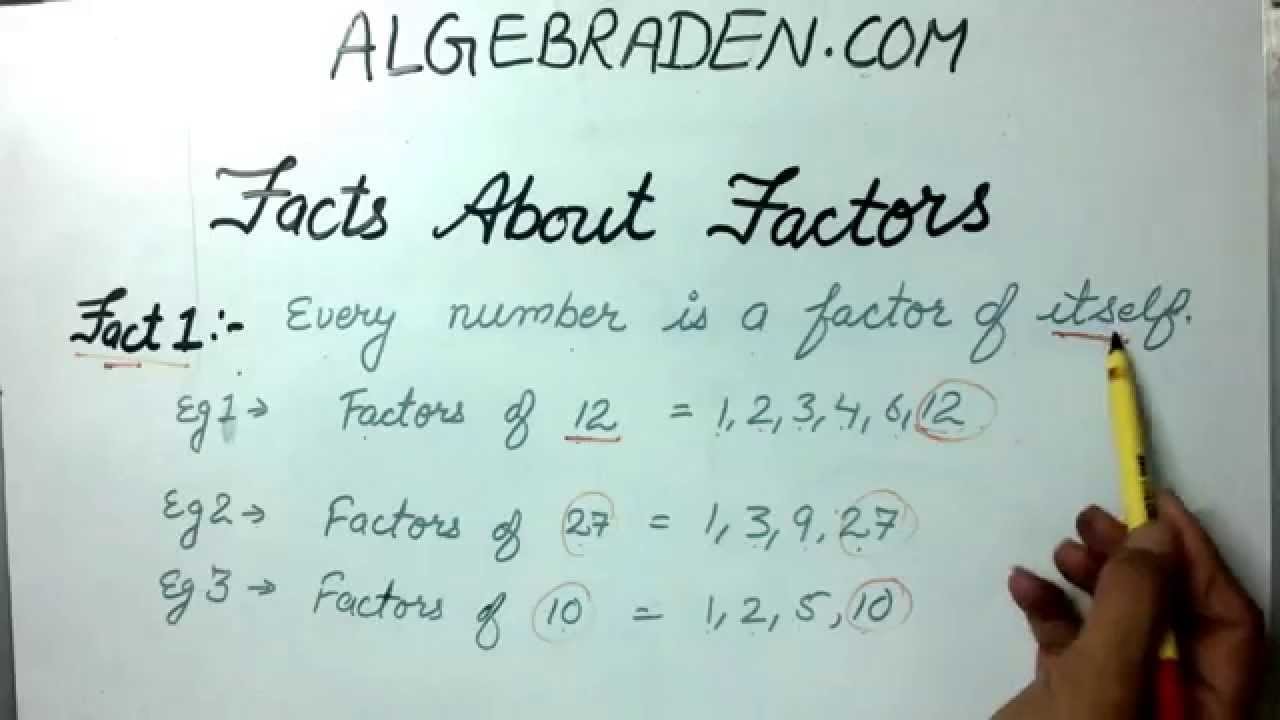 ALGEBRADEN.COM
Facts About Factors
Fact 1:- Every number is a factor of itself.
Eg1→ Factors of 12 = 1, 2, 3, 4, 6, 12
Eg2→ Factors of 27 = 1, 3, 9, 27
Eg3→ Factors of 10 = 1, 2, 5, 10